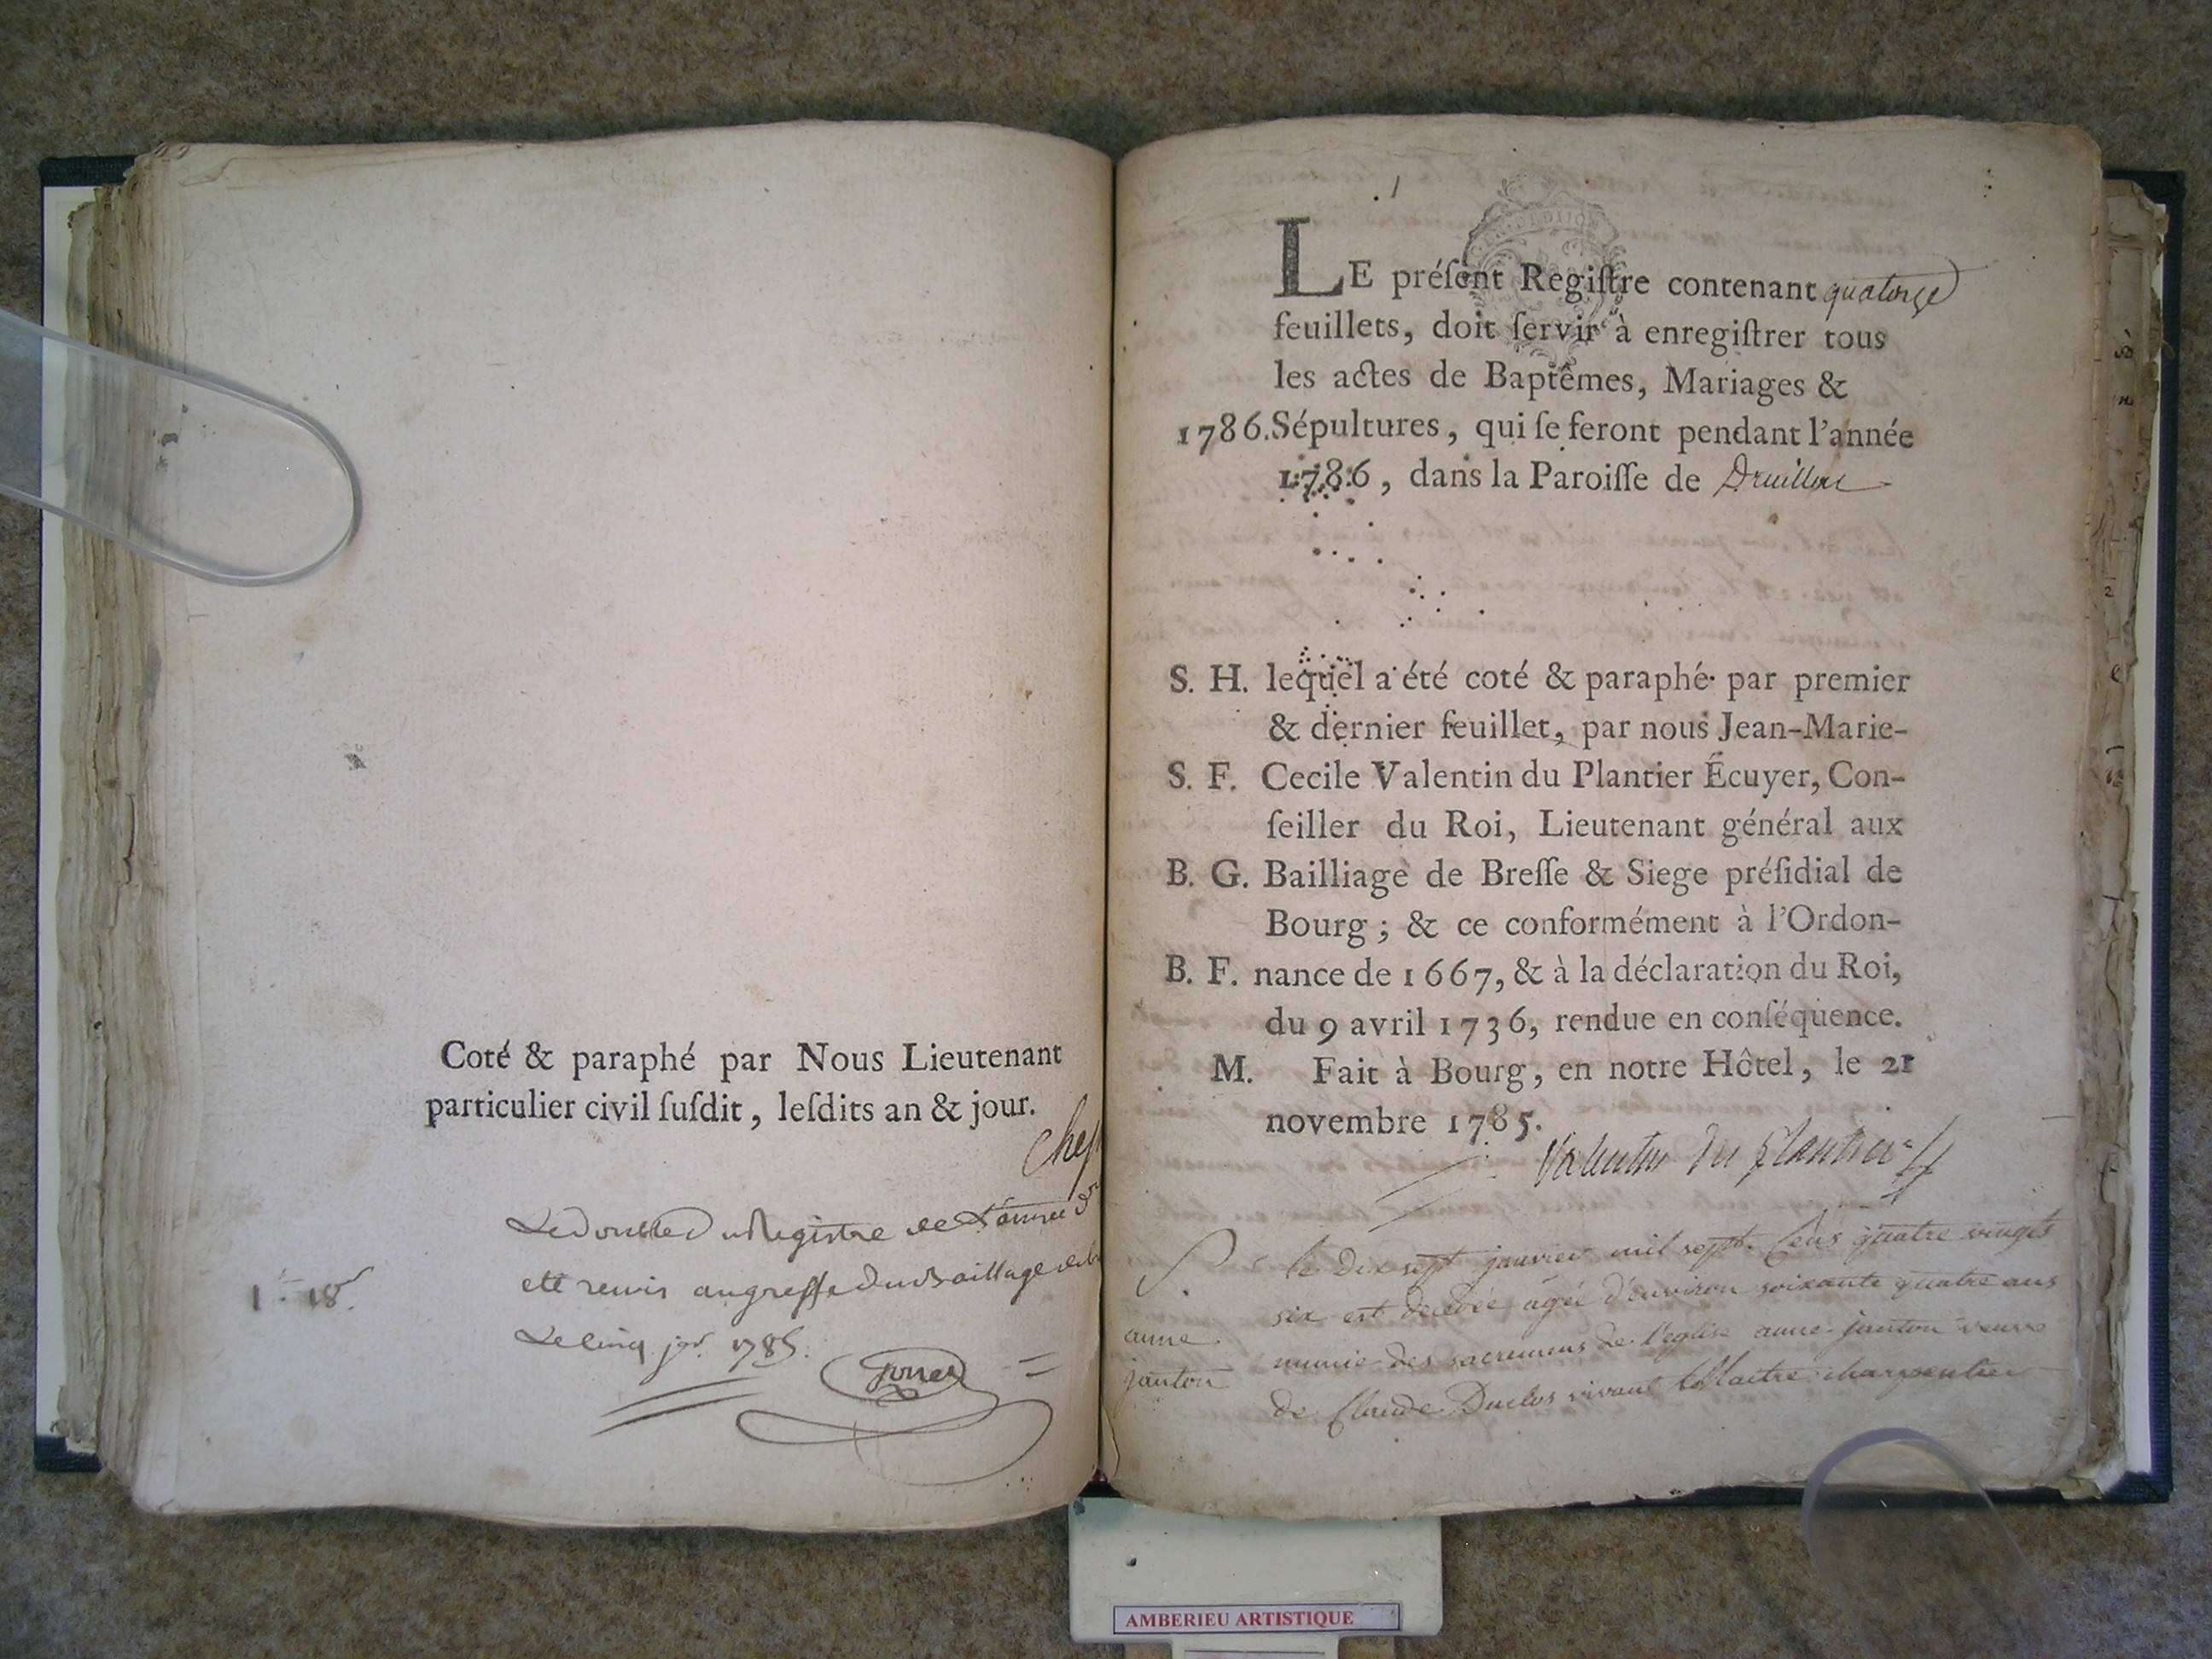 Coté & paraphé par Nous Lieutenant
particulier civil ſuſdit, leſdits an & jour.
Chef
Le double du Registre de L'année
eté remis au greffe du Bailliage
Le cinq jer. 1785.
1 18
1
LE préſent Regiſtre contenant quatorze
feuillets, doit ſervir à enregiſtrer tous
les actes de Baptêmes, Mariages &
1786. Sépultures, qui ſe feront pendant l'année
1786, dans la Paroiſſe de Druillat
S. H. lequel a été coté & paraphé par premier
& dernier feuillet, par nous Jean-Marie-
S. F. Cecile Valentin du Plantier Écuyer, Con-
ſeiller du Roi, Lieutenant général aux
B. G. Bailliage de Breſſe & Siege préſidial de
Bourg ; & ce conformément à l'Ordon-
B. F. nance de 1667, & à la déclaration du Roi,
du 9 avril 1736, rendue en conſéquence.
M. Fait à Bourg, en notre Hôtel, le 21
novembre 1785.
Valentin du plantier
S. le dix sept janvier mil sept Cens quatre vingts
six est décedée agée d'environ soixante quatre ans
anne munie des sacremens de l'eglise anne janton veuve
janton de Claude Duclos vivant Maitre charpentier
AMBERIEU ARTISTIQUE